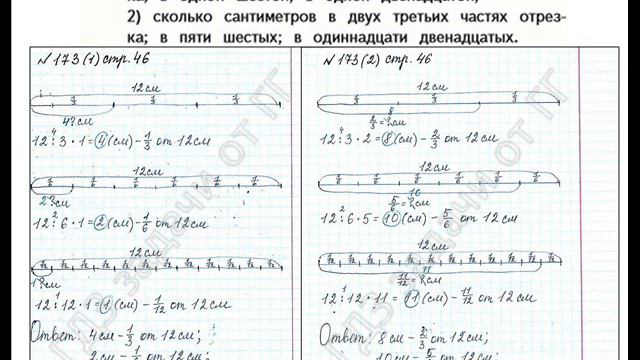 ка; в одной шестой; в одной двенадцатой;
2) сколько сантиметров в двух третьих частях отрез-
ка; в пяти шестых; в одиннадцати двенадцатых.
№173(1) стр. 46
12см
1/3 1/3 1/3
4?см
12:3·1=4(см)-1/3 от 12см
12см
1/6 1/6 1/6 1/6 1/6 1/6
2?см
12:6·1=2(см)-1/6 от 12 см
12см
1/12 1/12 1/12 1/12 1/12 1/12 1/12 1/12 1/12 1/12 1/12 1/12
1?см
12:12·1=1(см)-1/12 от 12см
Ответ: 4см-1/3 от 12см;
2см-1/6 от 12см;
№173(2) стр. 46
12см
1/3 1/3 1/3
8
2/3=?см
12:3·2=8(см)-2/3 от 12см
12см
1/6 1/6 1/6 1/6 1/6 1/6
10
5/6=?см
12:6·5=10(см)-5/6 от 12см
12см
1/12 1/12 1/12 1/12 1/12 1/12 1/12 1/12 1/12 1/12 1/12 1/12
11
11/12=?см
12:12·11=11(см)-11/12 от 12см
Ответ: 8см-2/3 от 12см;
10см-5/6 от 12см;
ГДЗ ЗАДАЧИ ОТ ГГ
ГДЗ ЗАДАЧИ ОТ ГГ